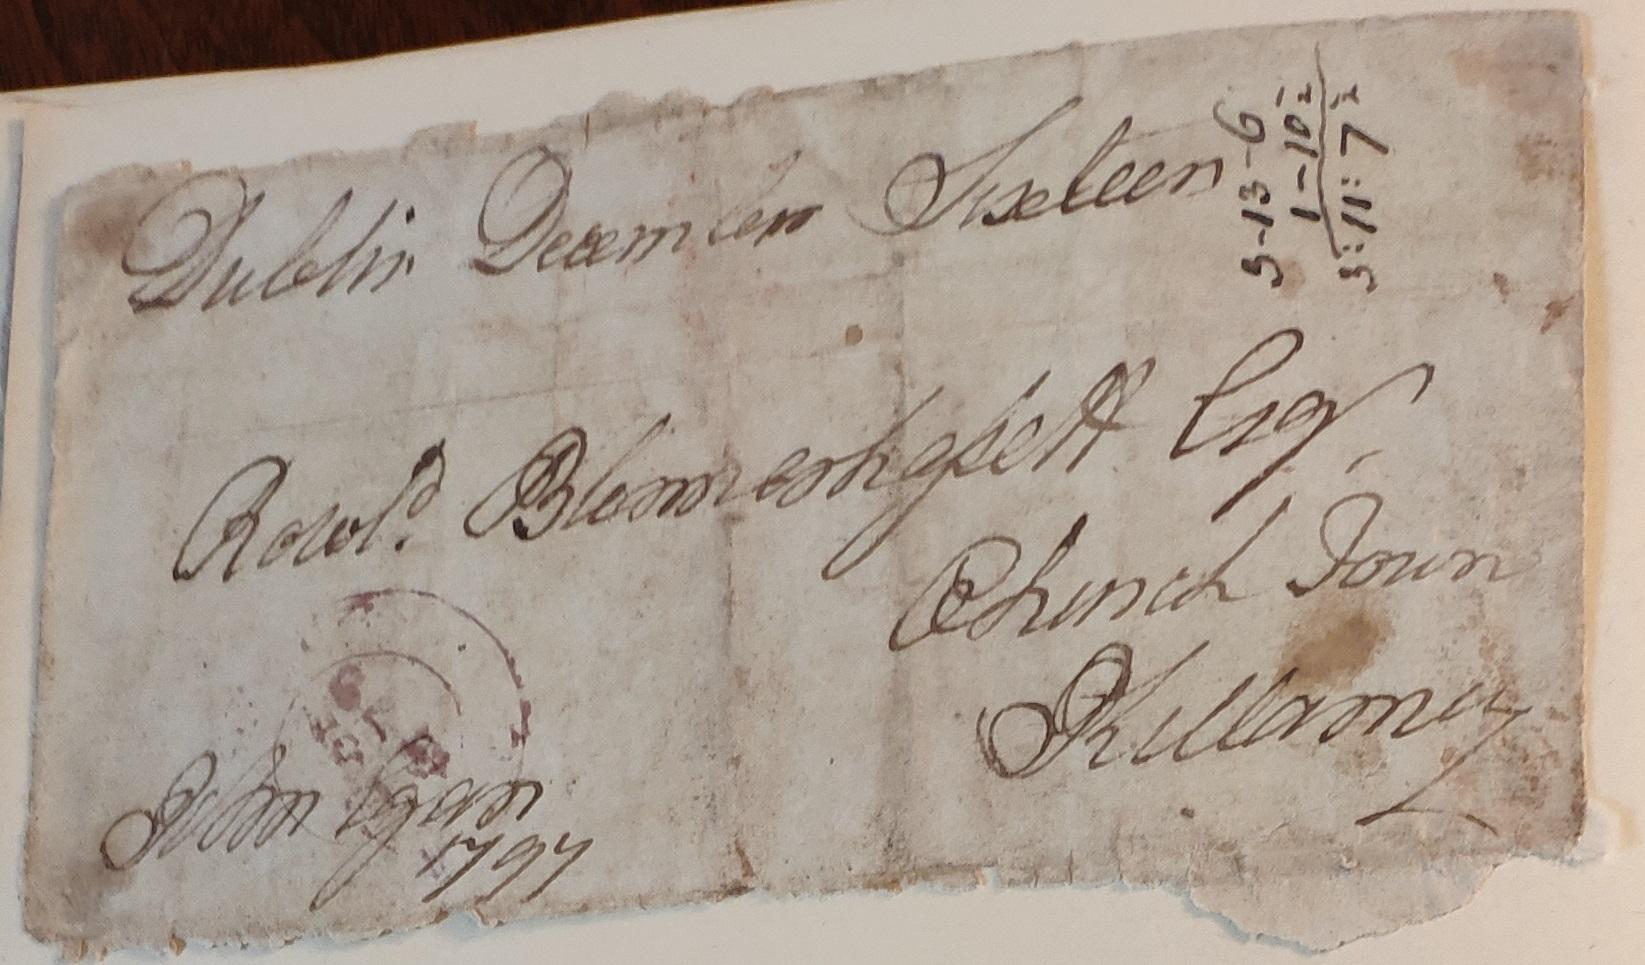 Dublin December Sixteen
Rowld. Blennerhassett Esqr.
Church Town
Killarney
John Egan
1797
3-13-6
1-10½
3:11:7½